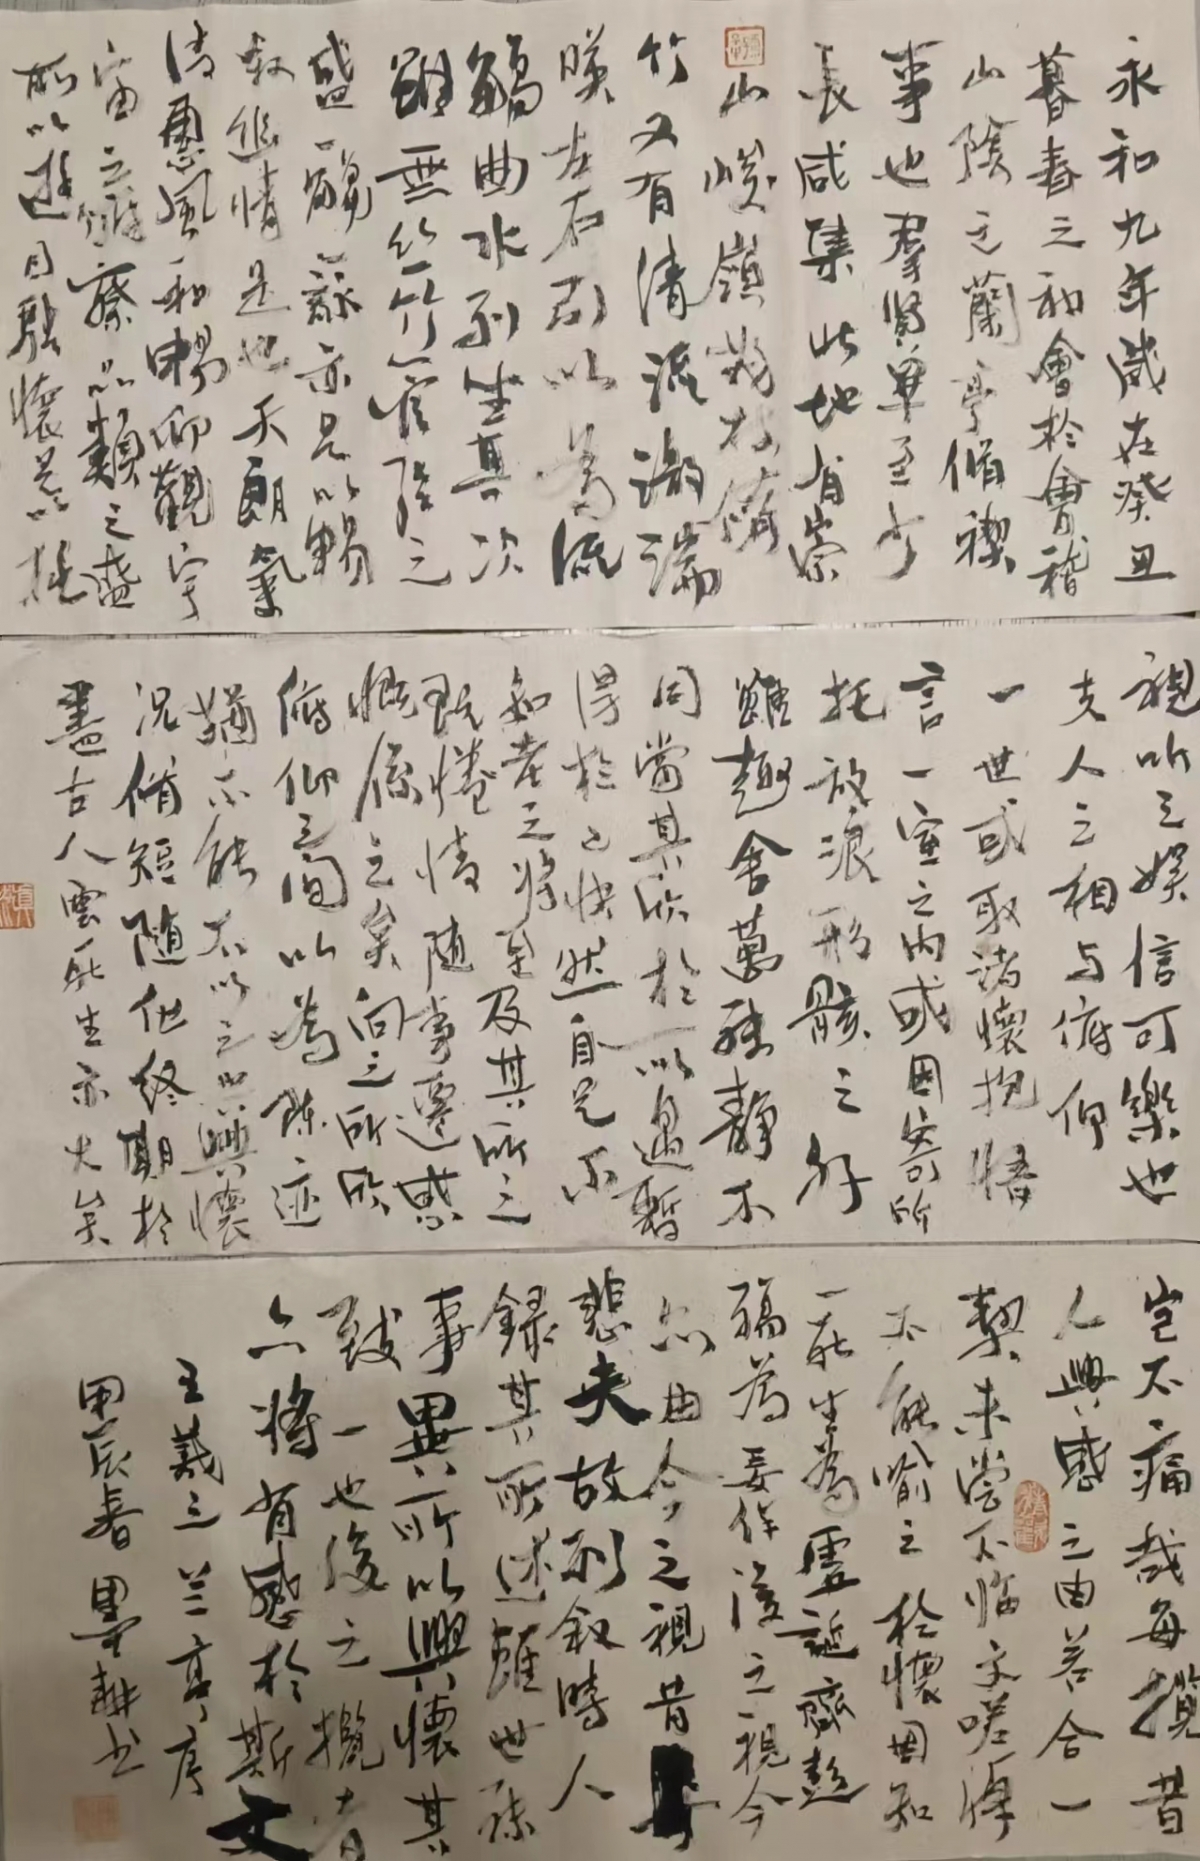 永和九年歲在癸丑
暮春之初會於會稽
山陰之蘭亭脩禊
事也群賢畢至少
長咸集此地有崇
山峻嶺茂林脩
竹又有清流激湍
暎左右引以為流
觴曲水列坐其次
雖無絲竹管弦之
盛一觴一詠亦足以暢
敘幽情是也天朗氣
清惠風和暢仰觀宇
宙之雖察品類之盛
所以遊目騁懷足以極
視听之娛信可樂也
夫人之相与俯仰
一世或取諸懷抱悟
言一室之內或因寄所
托放浪形骸之外
雖趣舍萬殊靜不
同當其欣於所遇暫
得於己快然自足不
知老之將至及其所之
既惓情隨事遷感
慨係之矣向之所欣
俯仰之间以為陳迹
猶不能不以之興懷
況脩短随化終期於
盡古人雲死生亦大矣
豈不痛哉每攬昔
人興感之由若合一
契未嘗不臨文嗟悼
不能喻之於懷固知
一死生為虛誕齊彭
殤為妄作後之視今
亦由今之視昔
悲夫故列叙時人
錄其所述雖世殊
事異所以興懷其
致一也後之攬者
亦將有感於斯文
王羲之兰亭序
甲辰春墨耕书